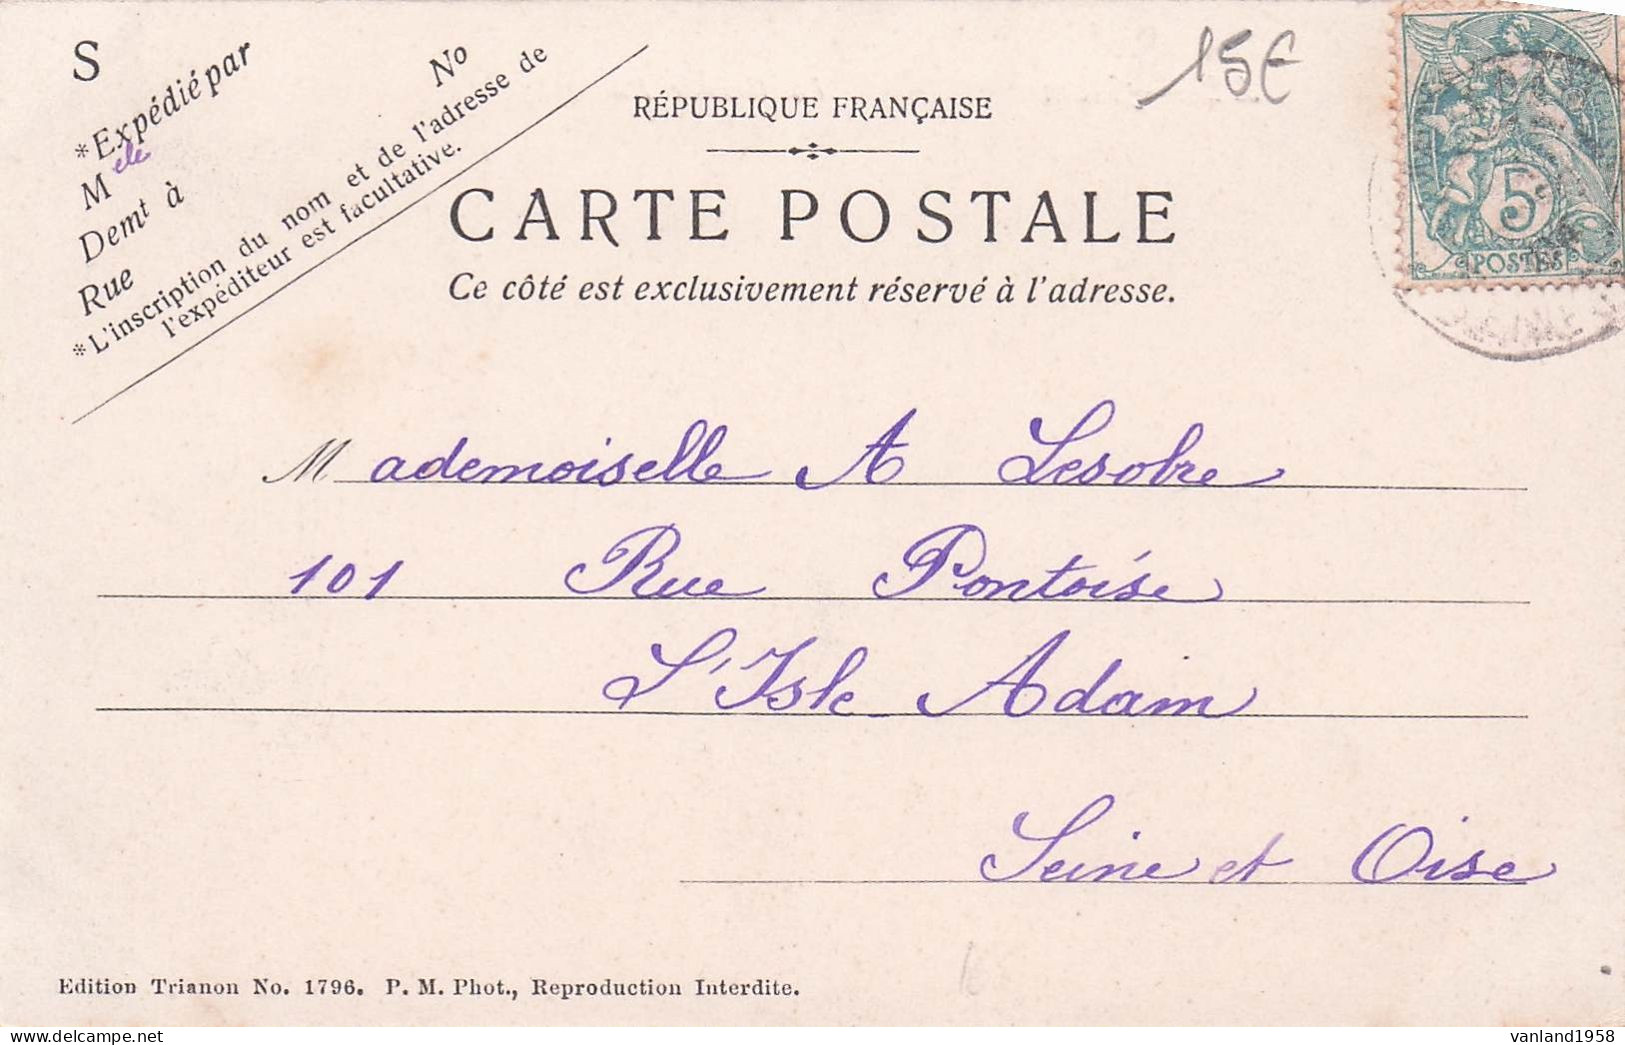 S
*Expédié par
No
Mele
Demt à
Rue
*L'inscription du nom et de l'adresse de
l'expéditeur est facultative.
15€
RÉPUBLIQUE FRANÇAISE
CARTE POSTALE
Ce côté est exclusivement réservé à l'adresse.
5
POSTES
Mademoiselle A Lesobre
101 Rue Pontoise
L'Isle Adam
Seine et Oise
Edition Trianon No. 1796. P. M. Phot., Reproduction Interdite.
vanland1958